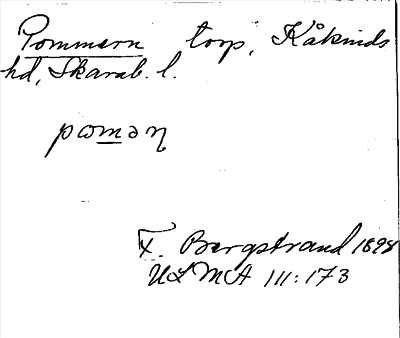 Pommern torp, Kåkinds
hd, Skarab. l.
pomən
F. Bergstrand 1898
ULMA 111:173